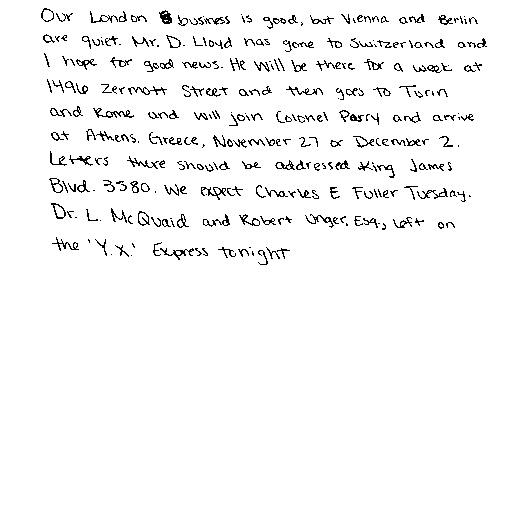 Our London business is good, but Vienna and Berlin
are quiet. Mr. D. Lloyd has gone to Switzerland and
I hope for good news. He will be there for a week at
1496 Zermott Street and then goes to Turin
and Rome and will join Colonel Parry and arrive
at Athens. Greece, November 27 or December 2.
Letters there should be addressed King James
Blvd. 3380. We expect Charles E Fuller Tuesday.
Dr. L. McQuaid and Robert Unger, Esq., left on
the 'Y.X.' Express tonight